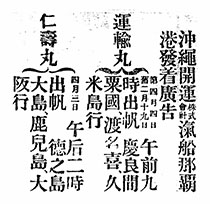 沖繩開運株式會社汽船那覇
港發着廣告
運輸丸 第二月十九日 第四月四日 午前九
時出帆 慶良間
粟國 渡名喜 久
米島行
仁壽丸 四月三日 午后二時
出帆 德之島
大島、鹿兒島、大
阪行